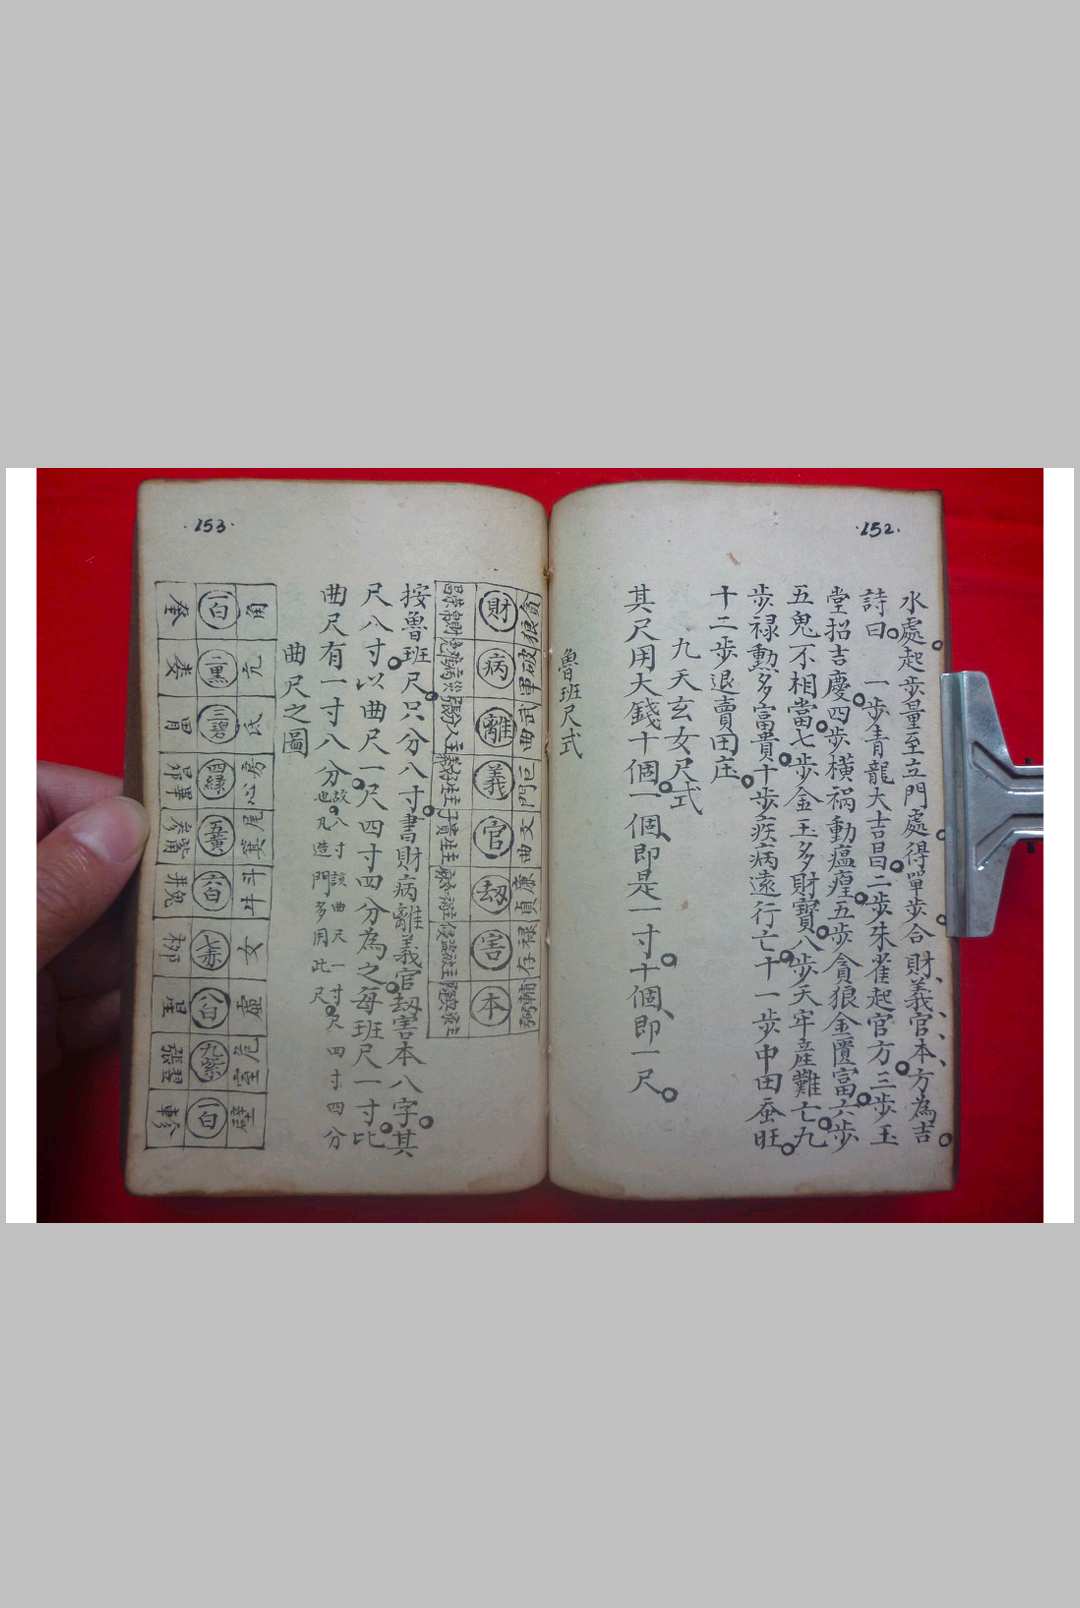 152.
水處起步量至立門處得單步合財義官本方為吉
詩曰　一步青龍大吉昌二步朱雀起官方三步玉
堂招吉慶四步橫禍動瘟瘟五步貪狼金匱富六步
五鬼不相當七步金玉多財寶八步天牢產難亡九
步祿勳多富貴十步疾病遠行亡十一步中田蚕旺
十二步退賣田庄
九天玄女尺式
其尺用大錢十個一個即是一寸十個即一尺
魯班尺式
.153.
貪狼 破軍 武曲 巨門 文曲 廉貞 祿存 輔弼
財 病 離 義 官 劫 害 本
按魯班尺只分八寸書財病離義官劫害本八字其
尺八寸以曲尺一尺四寸四分為之每班尺一寸比
曲尺有一寸八分故八寸該曲尺一尺四寸四分
也凡造門多用此尺
曲尺之圖
角 亢 氐 房心 尾箕 斗牛 女 虛 危室 壁
一白 二黑 三碧 四綠 五黃 六白 七赤 八白 九紫 白
奎 婁 胃 昴畢 觜參 井鬼 柳 星 張翌 軫